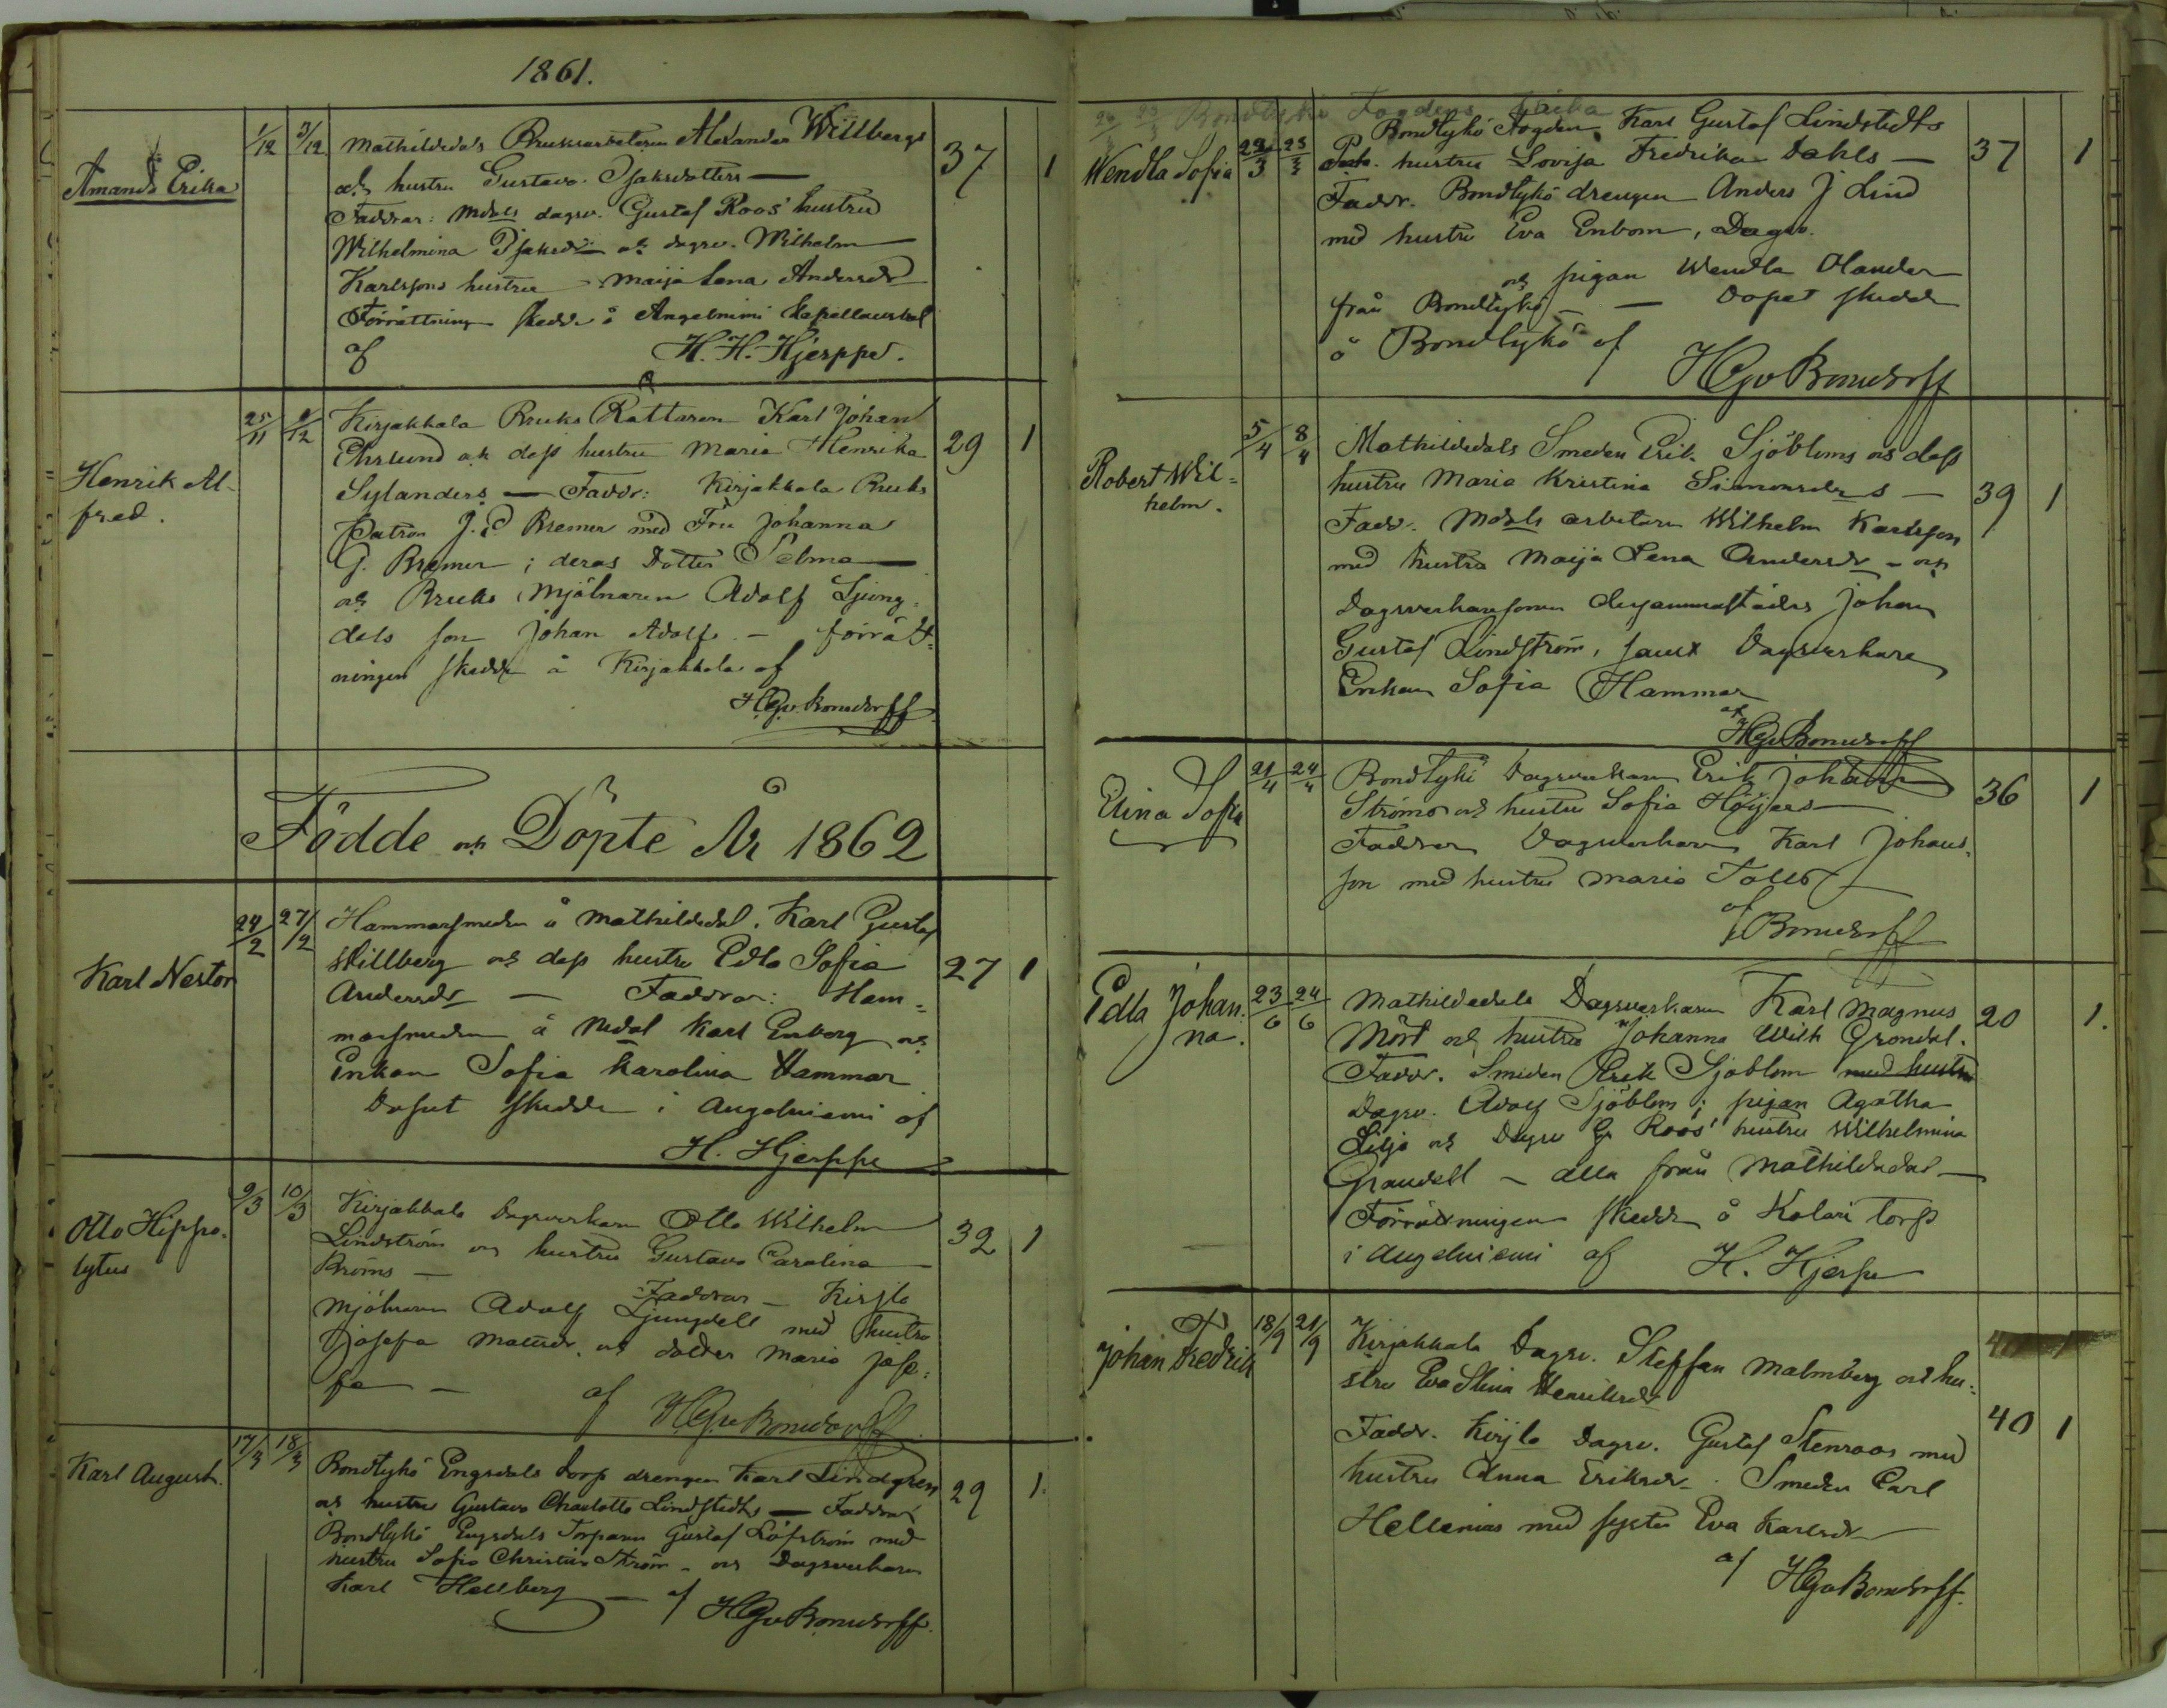 1861.
Amanda Erika
1/12 3/12
Mathildedals Bruksarbetaren Alexander Willbergs
och hustru Gustava Isaksdotters —
37 1
Faddrar: Mdals dagsv. Gustaf Roos' hustru
Wilhelmina Isaksdr och dagsv. Wilhelm
Karlssons hustru Maija Lena Andersdr
Förrättningen skedde å Angelniemi Kapellansbol
af H. H. Hjerppe.
Henrik Al-
fred.
25/11 2/12
Kirjakkala Bruks Rättaren Karl Johan
Ehrlund och dess hustru Maria Henrika
29 1
Sylanders — Faddr: Kirjakkala Bruks
Patron J. P Bremer med Fru Johanna
G. Bremer; deras Dotter Selma —
och Bruks Mjölnaren Adolf Ljung-
dels son Johan Adolf. — förrätt-
ningen skedde å Kirjakkala af
HGvBonsdorff
Födde och Döpte År 1862
Karl Nestor
24/2 27/2
Hammarsmeden å Mathildedal. Karl Gustaf
Killberg och dess hustru Edla Sofia
27 1
Andersdr — Faddrar: Ham-
marsmeden å Mdal Karl Enberg och
Enkan Sofia Karolina Hammar
Dopet skedde i Angelniemi af
H. Hjerppe
Otto Hippo-
lytus
9/3 10/3
Kirjakkala Dagsverkaren Otto Wilhelm
Lindström och hustru Gustava Carolina
32 1
Broms —
Faddrar — Kirjla
Mjölnaren Adolf Ljungdell med hustru
Josefa Mattsdr. och dotter Maria Jose-
fa — af HGvBonsdorff
Karl August.
17/3 18/3
Bondtykö Engsdals torp drengen Karl Lindgren
och hustru Gustava Charlotta Lindstedts — Faddrar
29 1.
Bondtykö Engsdals Torparen Gustaf Löfström med
hustru Sofia Christina Ström — och Dagsverkaren
Karl Hellberg — af HGvBonsdorff.
Bondtykö Fogdens
Wendla Sofia
22/3 23/3
Bondtykö Fogden Karl Gustaf Lindstedts
hustru Lovisa Fredrika Dahls —
37 1
Faddr. Bondtykö drengen Anders J Lind
med hustru Eva Enbom, Dagsv.
och pigan Wendla Olander
från Bondtykö — — Dopet skedde
å Bondtykö af
HGvBonsdorff
Robert Wil-
helm.
5/4 8/4
Mathildedals Smeden Erik Sjöbloms och dess
hustru Maria Kristina Simonsdrs —
39 1
Faddr. Mdals arbetaren Wilhelm Karlsson
med hustru Maija Lena Andersdr — och
Dagsverkaresonen dersammastädes Johan
Gustaf Lindström, samt Dagsverkare
Enkan Sofia Hammar
af
HGvBonsdorff
Elina Sofia
21/4 24/4
Bondtykö Dagsverkaren Erik Johan
Ströms och hustru Sofia Höijers —
36 1
Faddrar Dagsverkaren Karl Johans-
son med hustru Maria
af
Bonsdorff
Edla Johan-
na.
23/6 24/6
Mathildedals Dagsverkaren Karl Magnus
Mört och hustru Johanna Wilh Grondal.
20 1.
Faddr. Smeden Erik Sjöblom med hustru
Dagsv. Adolf Sjöblom; pigan Agatha
Lilja och Dagsv G Roos' hustru Wilhelmina
Grandell — alla från Mathildedal —
Förrättningen skedde å Kolari torp
i Angelniemi af H. Hjerpe
Johan Fredrik
18/9 21/9
Kirjakkala Dagsv. Steffan Malmberg och hu-
stru Eva Stina Henriksdr
40 1
Faddr. Kirjla Dagsv. Gustaf Stenroos med
hustru Anna Eriksdr — Smeden Carl
Hellenius med syster Eva Karlsdr —
af HGvBonsdorff.